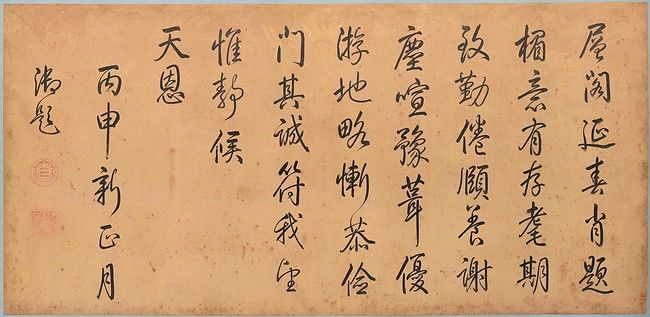 層閣延春肖題
楣意有存耄期
致勤倦頤養謝
塵喧豫葺優
游地略慚恭儉
門其誠符我望
惟靜候
天恩
丙申新正月
御題